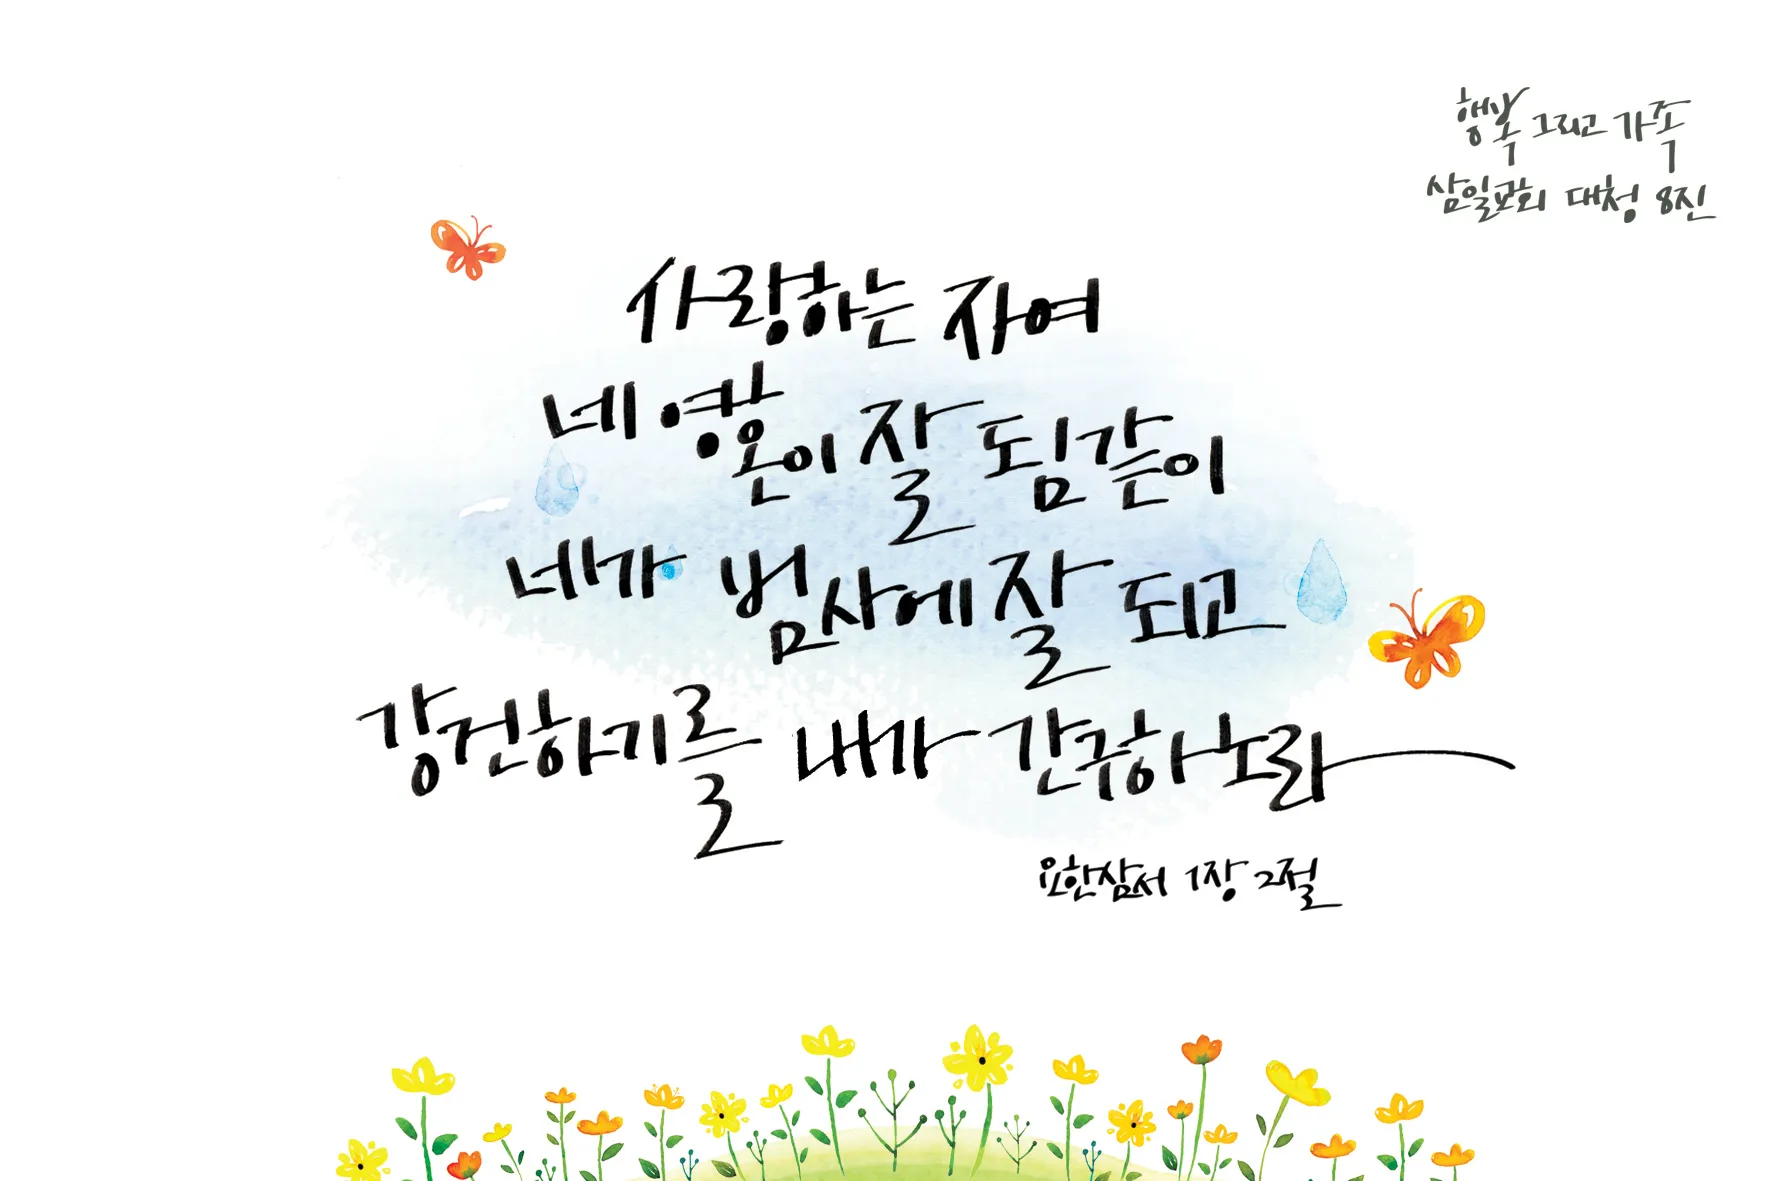 행복 그리고 가족
삼일교회 대청 8진
사랑하는 자여
네 영혼이 잘 됨같이
네가 범사에 잘 되고
강건하기를 내가 간구하노라
요한삼서 1장 2절